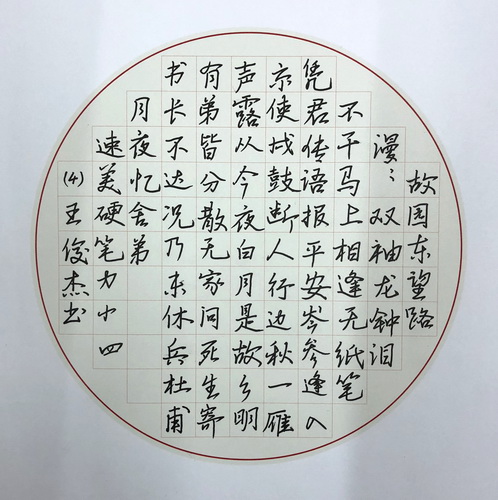 故园东望路
漫〻双袖龙钟泪
不干马上相逢无纸笔
凭君传语报平安岑参逢入
京使戍鼓断人行边秋一雁
声露从今夜白月是故乡明
有弟皆分散无家问死生寄
书长不达况乃未休兵杜甫
月夜忆舍弟
速美硬笔力小四
(4)王俊杰书